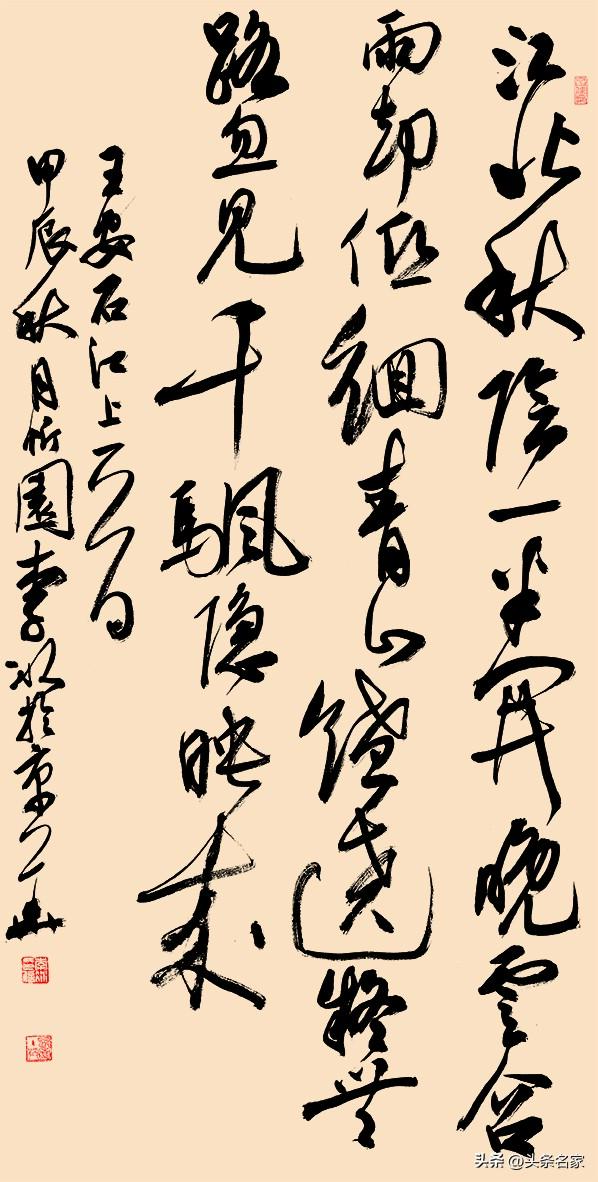 江北秋陰一半開晚雲含
雨却低徊青山繚遶疑無
路忽見千颿隐映来
王安石江上
甲辰秋月忻園李冰於京華
头条 @头条名家